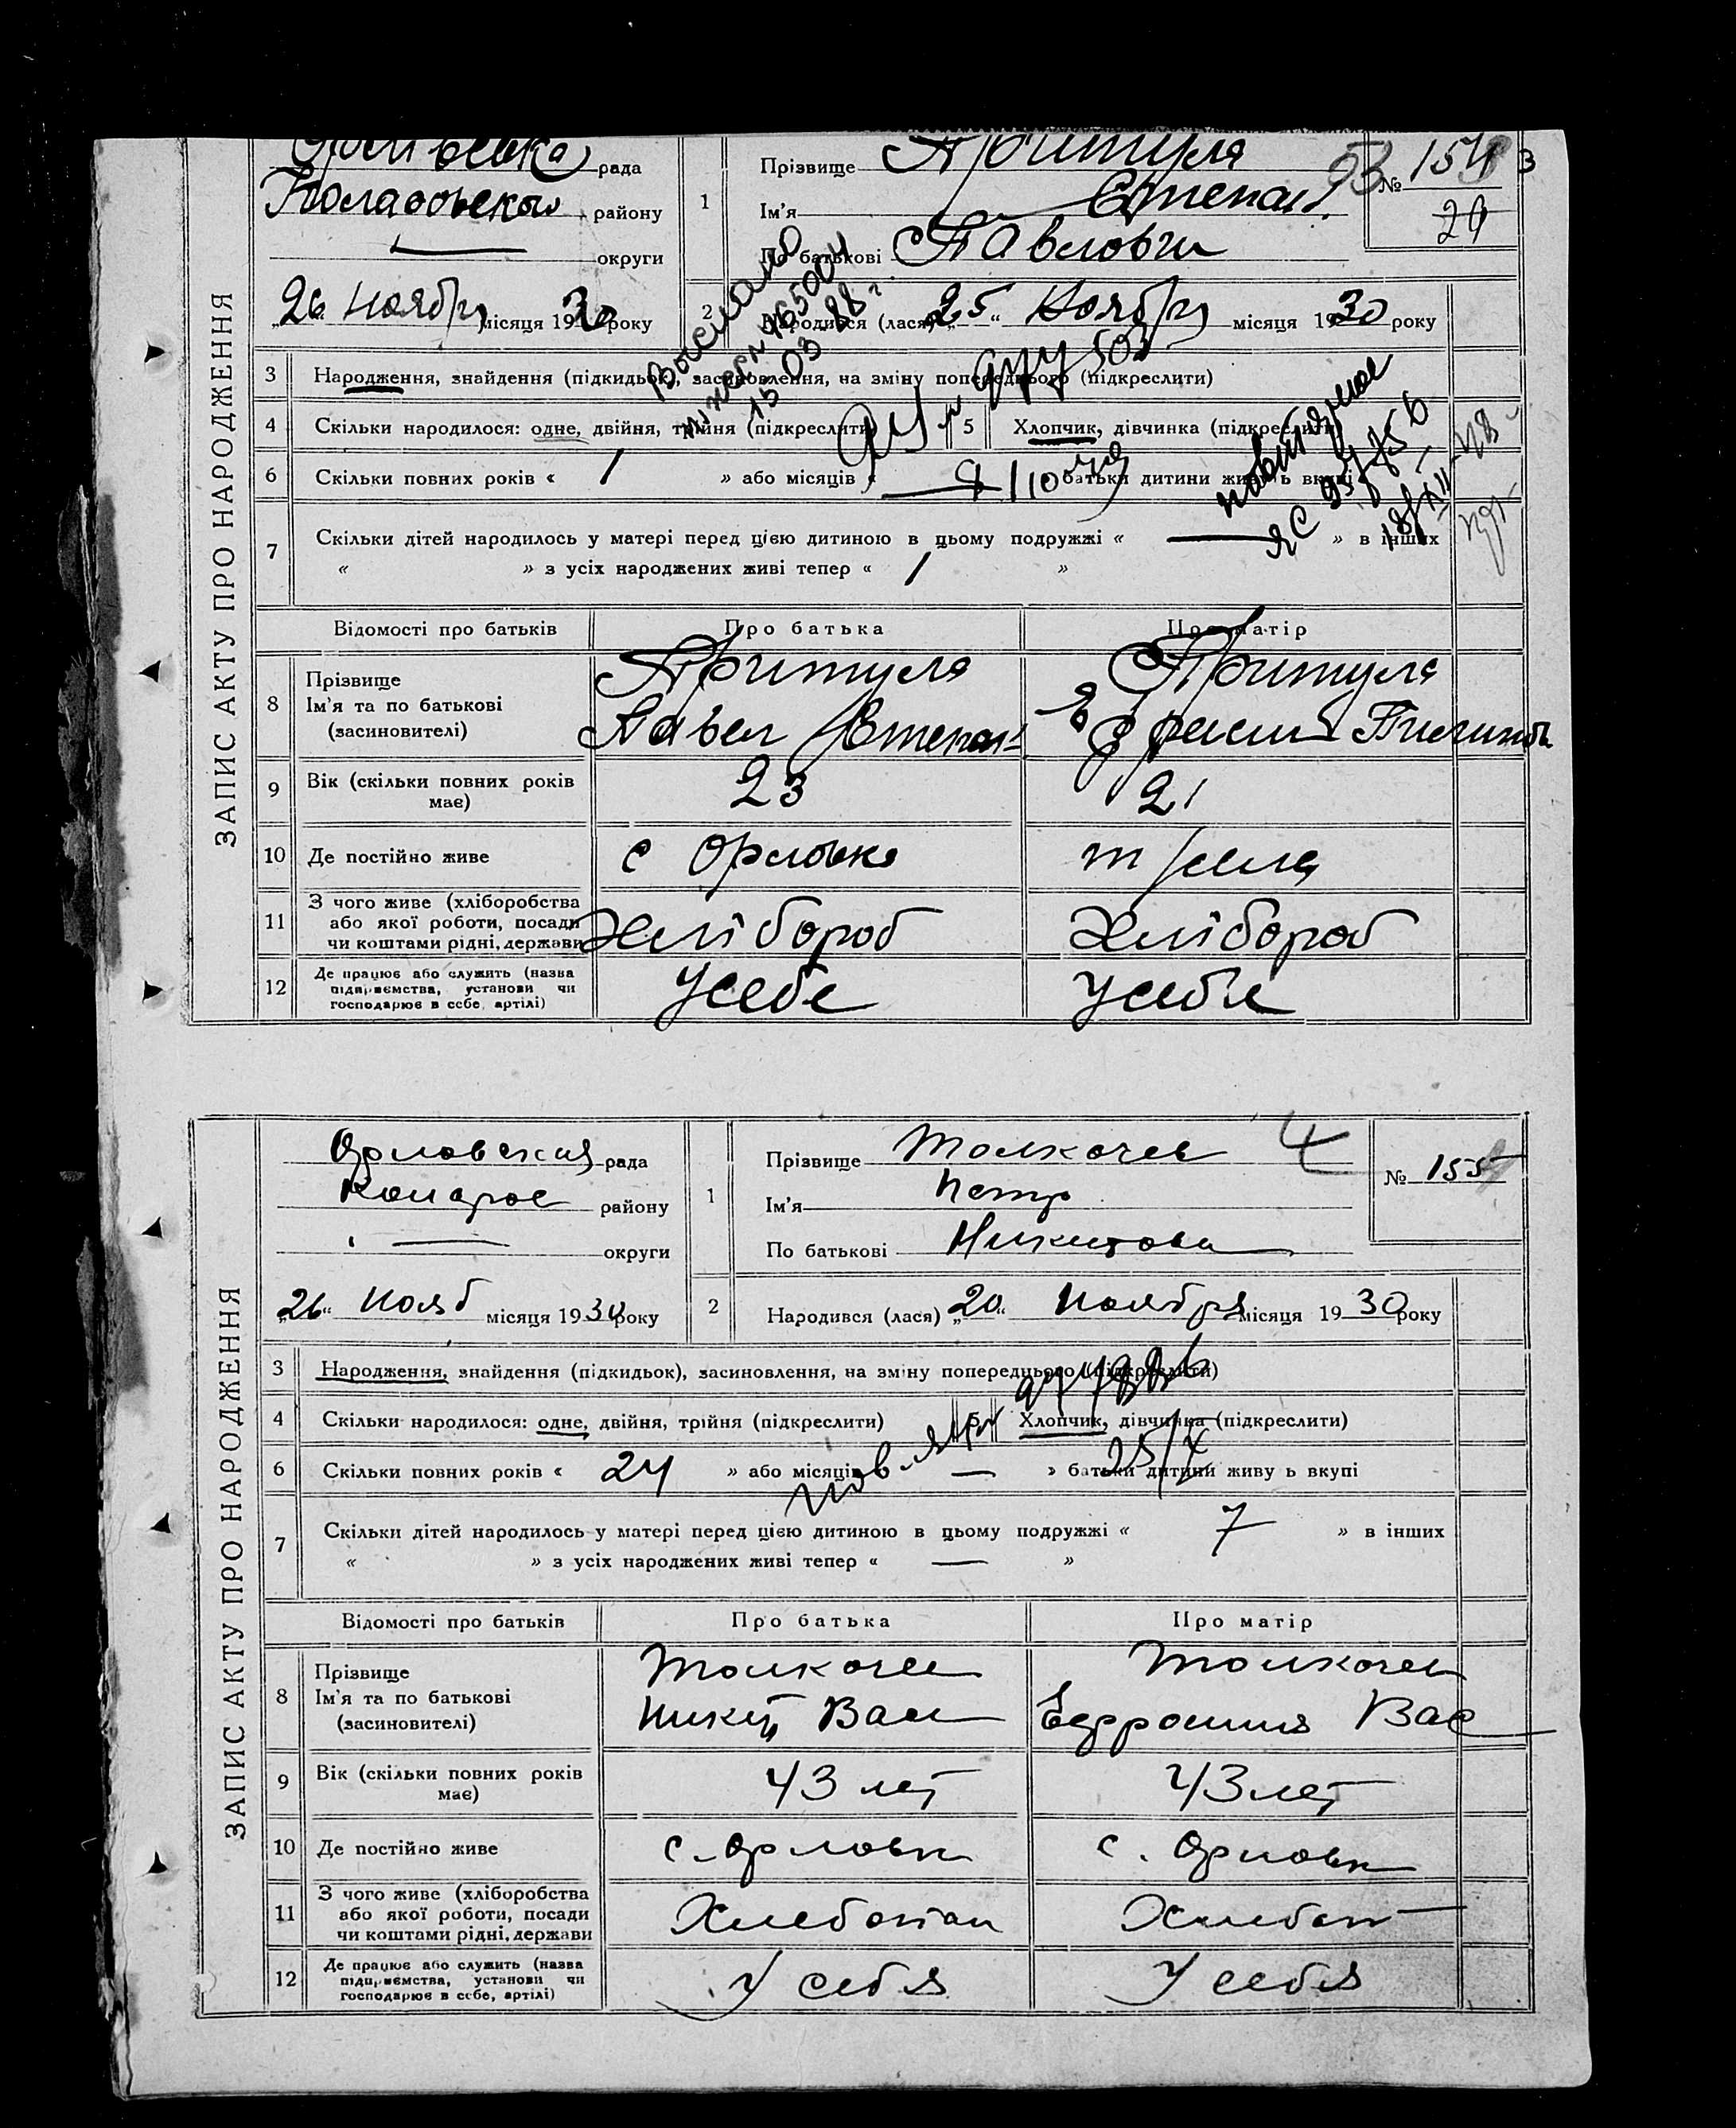 ЗАПИС АКТУ ПРО НАРОДЖЕННЯ
рада
району
округи
„26“ Ноября місяця 1930 року
1
Прізвище Притула
Ім'я Степан
По батькові Павлович
№ 154
29
53
3
2
Народився (лася) „25“ Ноября місяця 1930 року
Выслано
15 03 88 г.
3 Народження, знайдення (підкидьок), засиновлення, на зміну попереднього (підкреслити)
4 Скільки народилося: одне, двійня, трійня (підкреслити)
5 Хлопчик, дівчинка (підкреслити)
6 Скільки повних років « 1 » або місяців « » батьки дитини живуть вкупі
7 Скільки дітей народилось у матері перед цією дитиною в цьому подружжі « — » в інших
« » з усіх народжених живі тепер « 1 »
Відомості про батьків Про батька Про матір
8 Прізвище
Ім'я та по батькові
(засиновителі)
Притула
Павел Степан
Притула
9 Вік (скільки повних років
має)
23
21
10 Де постійно живе
с Орловка
11 З чого живе (хліборобства
або якої роботи, посади
чи коштами рідні, держави
Хлібороб
Хлібороб
12 Де працює або служить (назва
підприємства, установи чи
господарює в себе, артілі)
Усебе
Усебе
ЗАПИС АКТУ ПРО НАРОДЖЕННЯ
Орловская рада
району
— округи
„26“ Нояб місяця 1930 року
1
Прізвище Толкачев
Ім'я Петр
По батькові Никитови
4
№ 155
2
Народився (лася) „20“ Ноября місяця 1930 року
3 Народження, знайдення (підкидьок), засиновлення, на зміну попереднього (підкреслити)
4 Скільки народилося: одне, двійня, трійня (підкреслити)
5 Хлопчик, дівчинка (підкреслити)
6 Скільки повних років « 24 » або місяців — » батьки дитини живу ь вкупі
25/X
7 Скільки дітей народилось у матері перед цією дитиною в цьому подружжі « 7 » в інших
« » з усіх народжених живі тепер « — »
Відомості про батьків Про батька Про матір
8 Прізвище
Ім'я та по батькові
(засиновителі)
Толкачев
Никит Васи
Толкачев
Ефросиния Вас
9 Вік (скільки повних років
має)
43 лет
43 лет
10 Де постійно живе
с. Орловк
с. Орловк
11 З чого живе (хліборобства
або якої роботи, посади
чи коштами рідні, держави
Хлебопаш
Хлебоп
12 Де працює або служить (назва
підприємства, установи чи
господарює в себе, артілі)
У себя
У себя